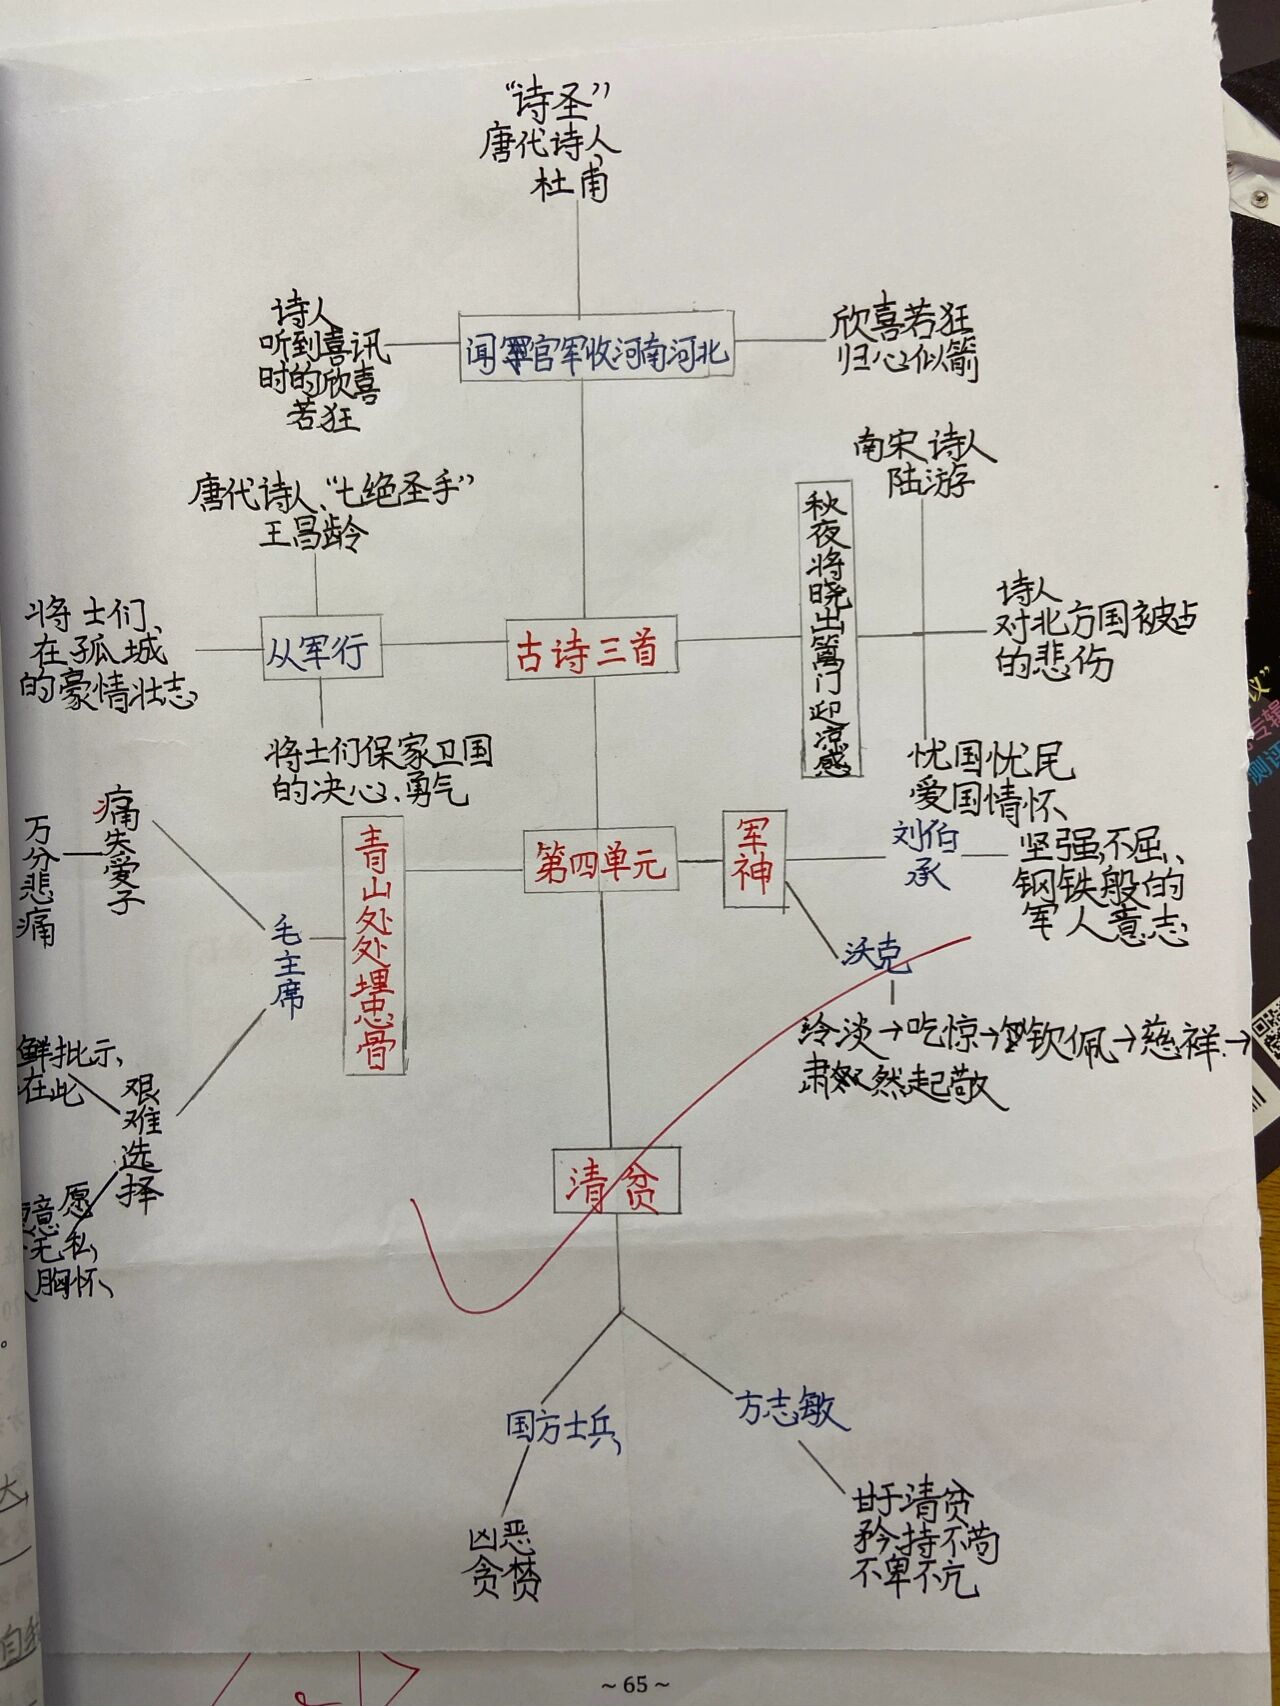 “诗圣”
唐代诗人、
杜甫
诗人
听到喜讯
时的欣喜
若狂
闻官军收河南河北
欣喜若狂
归心似箭
唐代诗人、“七绝圣手”
王昌龄
南宋诗人
陆游
秋夜将晓出篱门迎凉感
将士们、
在孤城
的豪情壮志
从军行
古诗三首
诗人
对北方国被占
的悲伤
将士们保家卫国
的决心、勇气
忧国忧民
爱国情怀、
万分悲痛
痛失爱子
毛主席
青山处处埋忠骨
第四单元
军神
刘伯
承
坚强,不屈、
钢铁般的
军人意志
沃克
冷淡→吃惊→钦佩→慈祥→
肃然起敬
鲜批示、
在此
艰难选择
意愿
无私,
胸怀、
清贫
国方士兵
方志敏
凶恶
贪婪
甘于清贫
矜持不苟
不卑不亢
~ 65 ~